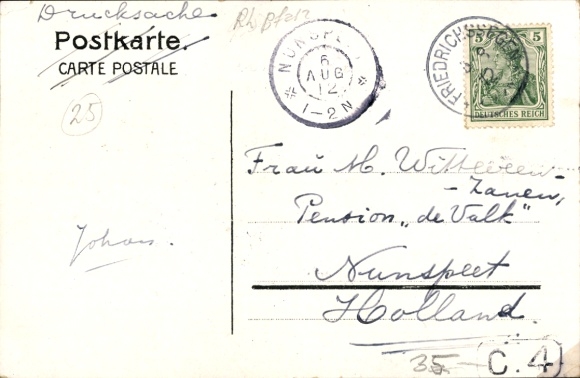 Drucksache
Postkarte.
CARTE POSTALE
Rh Pfalz
25
NUNSPEET
6
AUG
12
1-2 N
FRIEDRICHSSEGEN
5 5
DEUTSCHES REICH
Frau M. Witteveen
- Zanen,
Pension „de Valk"
Nunspeet
Holland.
Johan.
35-
C.4